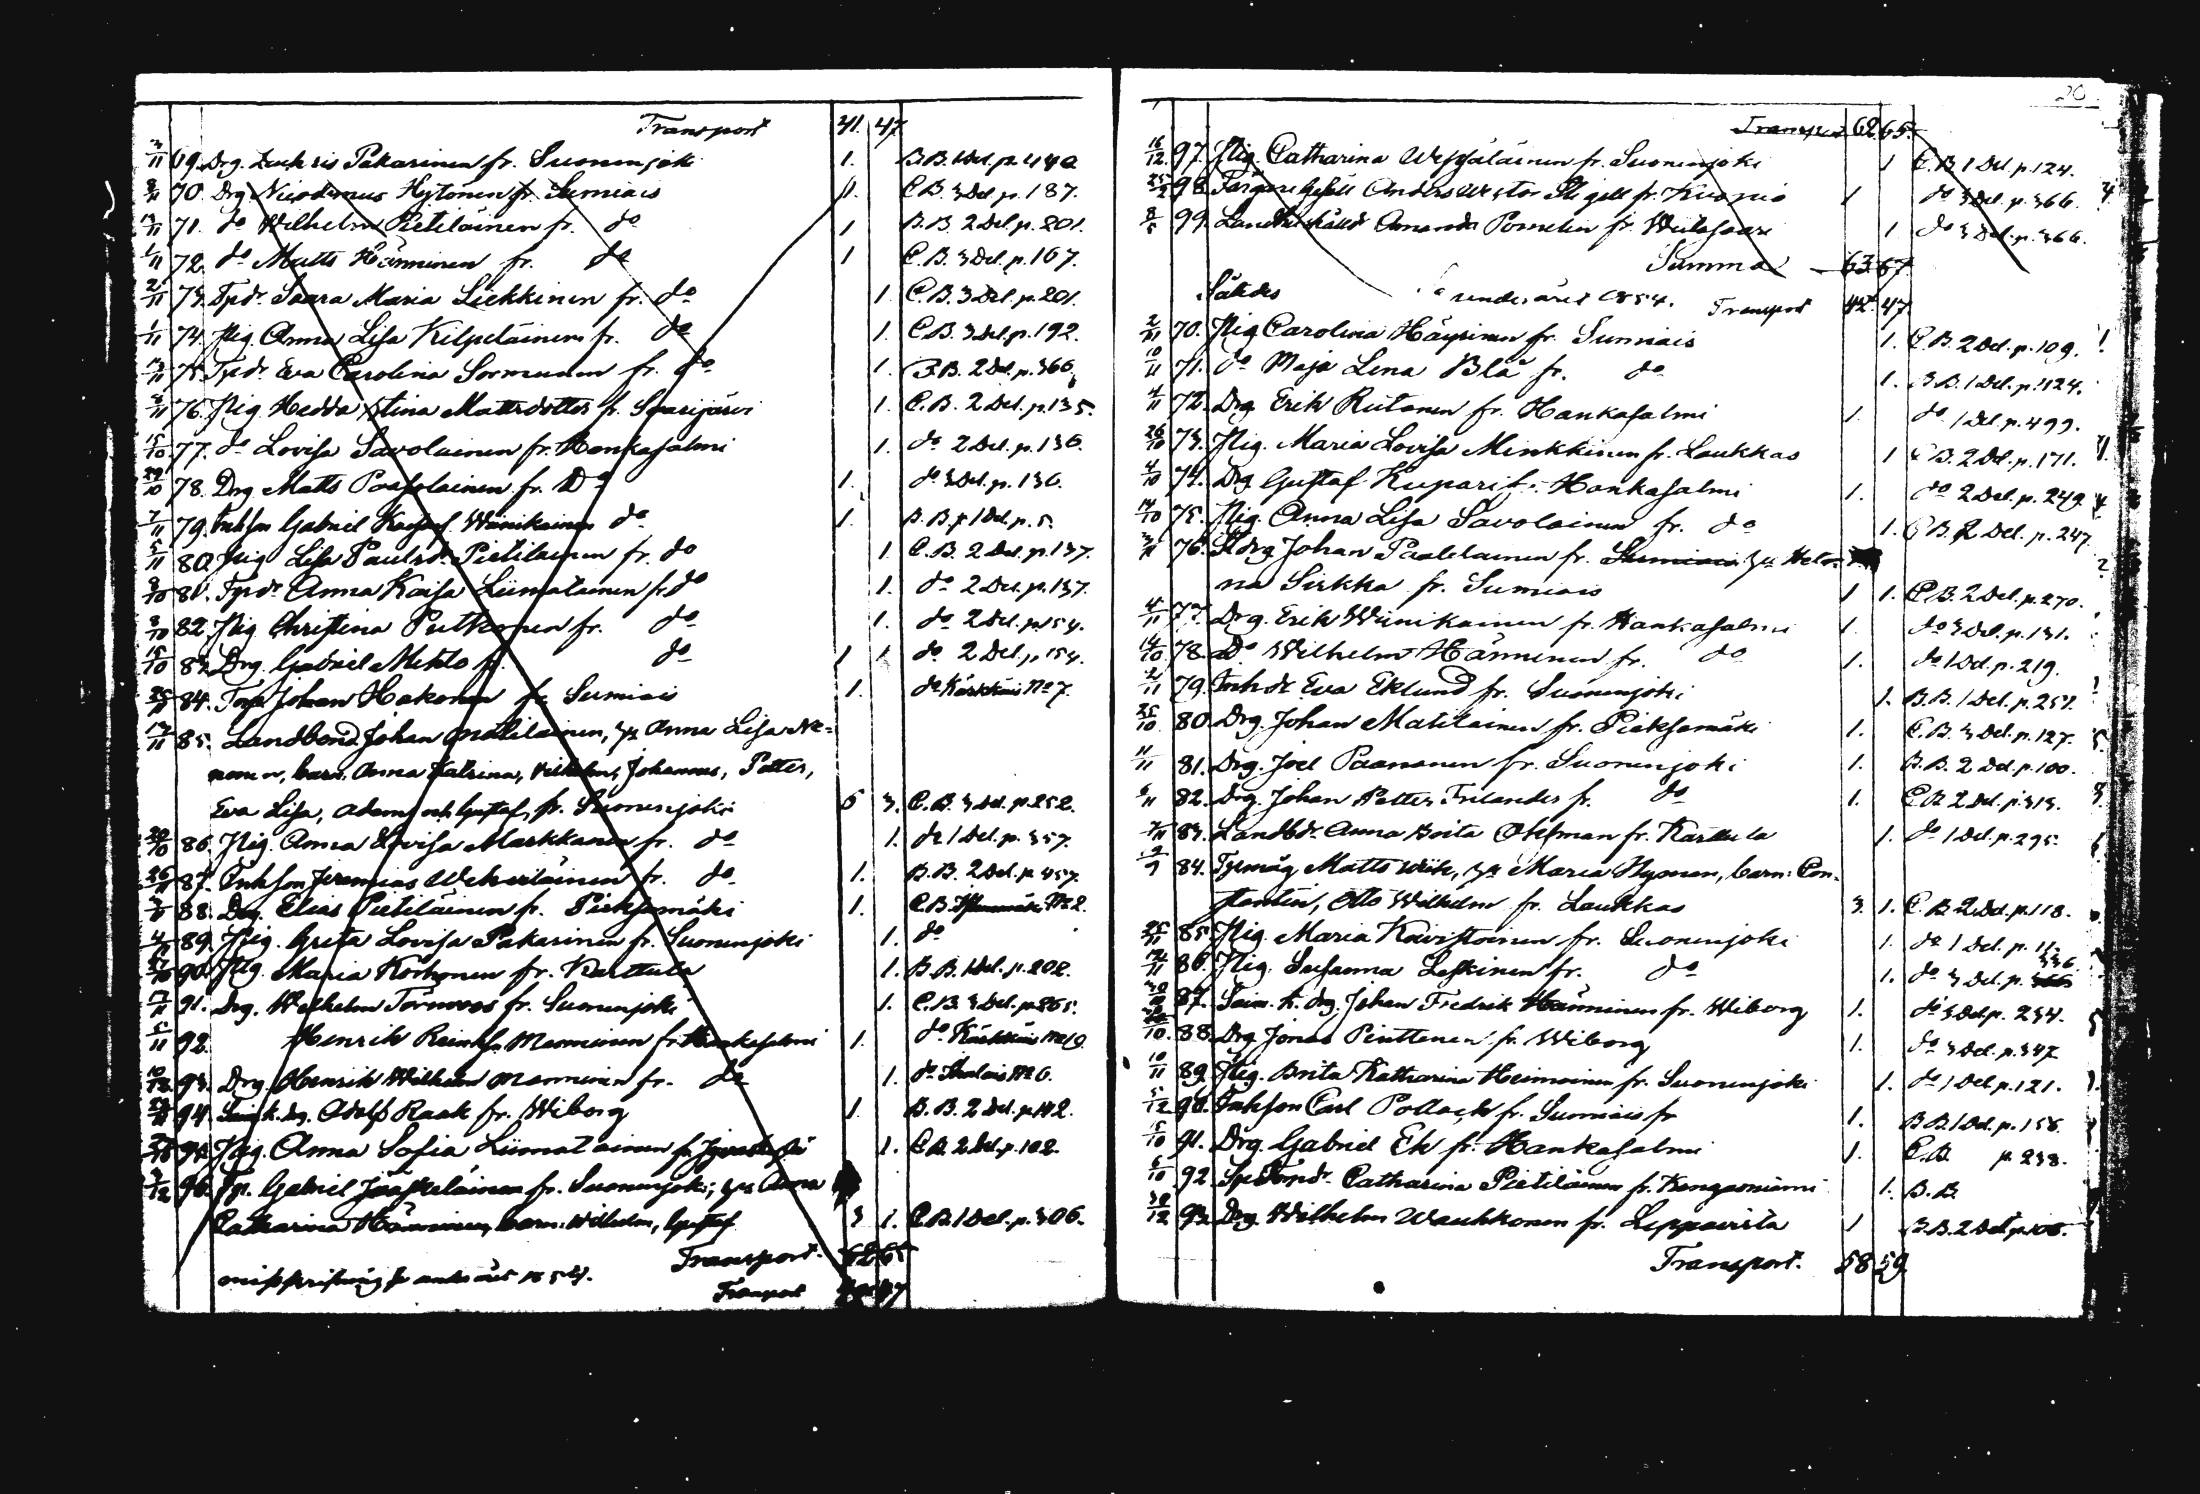 Transport 41. 47.
3/11 69. Drg. Zachris Pakarinen fr. Suonenjoki 1. B.B. 1 Del. p. 440
8/11 70. Drg Nicodemus Hytönen fr. Sumiais 1. C.B. 3 Del. p. 187.
13/11 71. do Wilhelm Pietiläinen fr. do 1 B.B. 2 Del. p. 201.
1/11 72. do Matts Hänninen fr. do 1 C.B. 3 Del. p. 167.
2/11 73. Tpdr. Saara Maria Liekkinen fr. do 1. C.B. 3 Del. p. 201.
1/11 74. Pig. Anna Lisa Kilpeläinen fr. do 1. C.B. 3 Del. p. 192.
13/11 75. Tpdr. Eva Carolina Sormunen fr. do 1. B.B. 2 Del. p. 366.
8/11 76. Pig. Hedda Stina Mattsdotter fr. Saarijärvi 1. C.B. 2 Del. p. 135.
15/10 77. do Lovisa Savolainen fr. Hankasalmi 1. do 2 Del. p. 136.
29/10 78. Drg Matts Poasolainen fr. Do 1. do 3 Del. p. 136.
7/11 79. Inhson Gabriel Winikainen do 1. B.B. 1 Del. p. 5.
5/11 80. Pig Lisa Paulsd. Pietilainen fr. do 1. C.B. 2 Del. p. 137.
8/10 81. Tpdr. Anna Kaisa Liimatainen fr do 1. do 2 Del. p. 137.
8/10 82. Pig Christina Putkonen fr. do 1. do 2 Del. p. 154.
15/10 83. Drg. Gabriel Mehto fr. do 1 1 do 2 Del. p. 154.
84. Torp Johan Hakonen fr Sumiais 1. do Kärkkäis No 7.
13/11 85. Landbond Johan Matilainen, hu Anna Lisa Ne-
nonen, barn: Anna Katrina, Vilhelm, Johannes, Petter,
Eva Lisa, Adam och Gustaf, fr. Suonenjoki 6 3. C.B. 3 Del. p. 252.
20/10 86. Pig. Anna Lovisa Markkanen fr. do 1. do 1 Del. p. 357.
87. Inhson Jeremias Wehviläinen fr. do 1. B.B. 2 Del. p. 457.
88. Drg. Elias Pietiläinen fr. Pieksamäki 1. C.B. No 2.
89. Pig. Greta Lovisa Pakarinen fr. Suonenjoki 1. do
90. Pig. Maria Korhonen fr. Karttula 1. B.B. 1 Del. p. 202.
91. Drg. Wilhelm Törnroos fr. Suonenjoki 1. C.B. 3 Del. p. 265.
5/11 92. Henrik Manninen fr. Hankasalmi 1. do Kärkkäis No 19.
10/12 93. Drg. Henrik Wilhelm Manninen fr. do 1. do No 6.
94. Drg. Adolf Raak fr. Wiborg 1. B.B. 2 Del. p. 142.
95. Pig. Anna Sofia Liimatainen fr. Jyväskylä 1. C.B. 2 Del. p. 102.
9/12 96. Tp. Gabriel Jääskeläinen fr. Suonenjoki; hu Anna
Catharina Hänninen, barn: Wilhelm, Gustaf 3 1. C.B. 1 Del. p. 306.
Transport. 62 65
misskrifning se andra året 1854.
Transport 47
Transport 62. 65.
16/12 97. Pig. Catharina Weijäläinen fr. Suonenjoki 1 C.B. 1 Del p. 124.
98. Färgare Gesäll Anders Wictor Stigell fr. Kuopio 1 do 3 Del. p. 366.
8/5 99. Amanda Pomelin fr. Wiitasaari 1 do 3 Del. p. 366.
Summa 63 67
Således under året 1854. Transport 42. 47
2/11 70. Pig Carolina Häyrinen fr. Sumiais 1. C.B. 2 Del. p. 109.
10/11 71. do Maja Lena Blå fr. do 1. B.B. 1 Del. p. 1124.
4/11 72. Drg. Erik Riitanen fr. Hankasalmi 1. do 1 Del. p. 499.
26/10 73. Pig. Maria Lovisa Minkkinen fr. Laukkas 1 C.B. 2 Del. p. 171.
4/10 74. Drg Gustaf Kupari fr. Hankasalmi 1. do 2 Del. p. 249
14/10 75. Pig. Anna Lisa Savolainen fr. do 1. C.B. 2 Del. p. 247.
76. Stdrg Johan Paalelainen fr. Sumiais hu Hele-
na Sirkka fr. Sumiais 1 1. C.B. 2 Del. p. 270.
4/11 77. Drg. Erik Winikainen fr. Hankasalmi 1. do 3 Del. p. 131.
14/10 78. Do Wilhelm Hänninen fr. do 1. do 1 Del. p. 219.
2/11 79. Inhdr Eva Eklund fr. Suonenjoki 1. B.B. 1 Del. p. 257.
25/10 80. Drg. Johan Matilainen fr. Pieksamäki 1. C.B. 3 Del. p. 127.
11/11 81. Drg. Joel Paananen fr. Suonenjoki 1. B.B. 2 Del. p. 100.
6/11 82. Drg. Johan Petter Frilander fr. do 1. C.B. 2 Del. p. 313.
83. Landbdr. Anna Brita Ohlman fr. Karttula 1. do 1 Del. p. 295.
84. Matts Wiik, hu Maria Nyman, barn: Con-
stantin, Otto Wilhelm fr. Laukkas 3 1. C.B. 2 Del. p. 118.
25/11 85. Pig. Maria Koivistoinen fr. Suonenjoki 1. do 1 Del. p. 11.
86. Pig. Susanna Leskinen fr. do 1. do 3 Del. p. 336
87. drg. Johan Fredrik Hänninen fr. Wiborg 1. do 3 Del p. 234.
88. Drg Jonas Pinttenen fr. Wiborg 1. do 3 Del. p. 347
10/11 89. Pig. Brita Katharina Heimoinen fr. Suonenjoki 1. do 1 Del. p. 121.
5/12 90. Inhson Carl Pollack fr. Sumiais fr 1. B.B. 1 Del. p. 156.
15/10 91. Drg. Gabriel Ek fr. Hankasalmi 1. C.B. p. 238.
8/10 92. Catharina Pietiläinen fr. Kangasniemi 1. B.B.
30/12 93. Drg. Wilhelm Wauhkonen fr. Leppävirta 1 B.B. 2 Del p. 106.
Transport. 58 59.